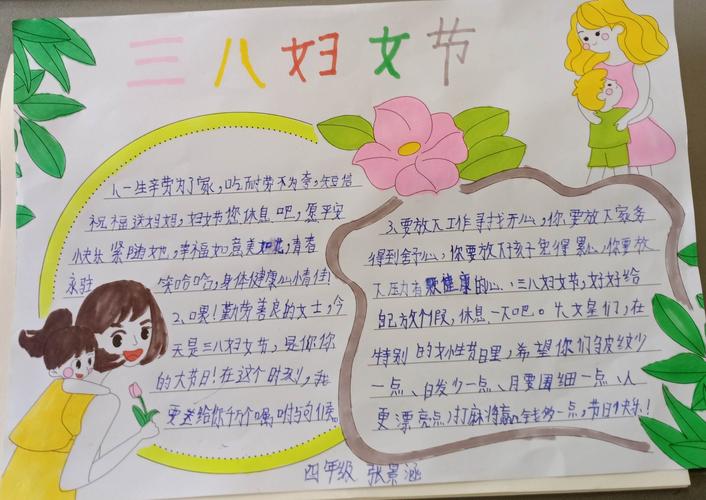 三八妇女节
1、一生辛劳为了家，吃耐劳不为夸，短信
祝福送妈妈，妇女节您休息吧，愿平安
小快乐紧随她，幸福如意美如花，青春
永驻 笑哈哈，身体健康心情佳！
2、嘿！勤劳善良的女士，今
天是三八妇女节，是你你
的大节日！在这个时刻，我
更送给你千万个嘱咐与问候。
3、要放下工作寻找开心，你要放下家务
得到舒心，你要放下孩子免得累心，你要放
下压力有颗健康的心，三八妇女节，好好给
自己放个假，休息一下吧。 女皇们，在
特别的女性节日里，希望你们皱纹少
一点、白发少一点、月要围细一点、人
更漂亮点，打麻将赢钱多一点，节日快乐！
四年级 张景涵